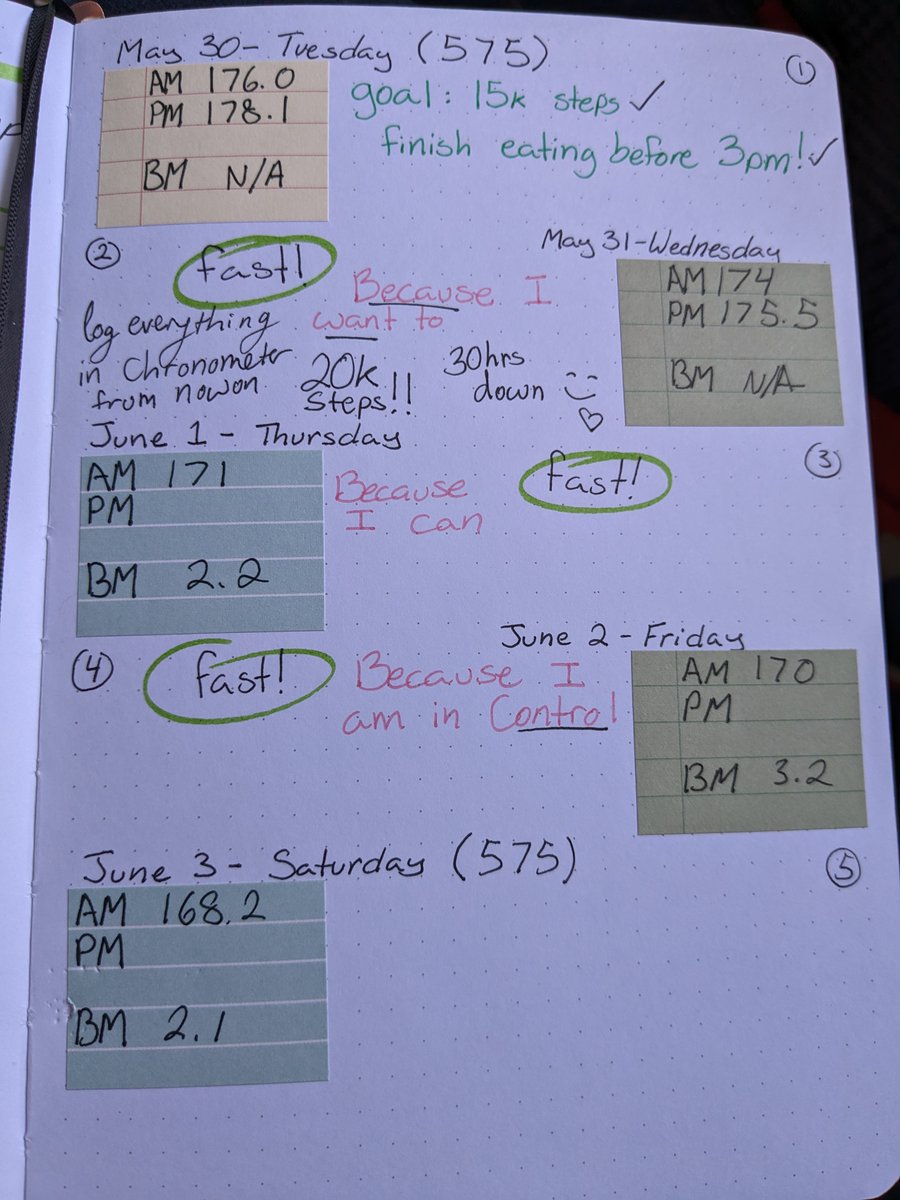 May 30 - Tuesday (575)
①
AM 176.0
PM 178.1
BM N/A
goal: 15k steps ✓
finish eating before 3pm! ✓
②
May 31-Wednesday
fast!
Because I
want to
AM 174
PM 175.5
BM N/A
log everything
in Chronometer
from now on
20k
steps!!
30hrs
down
June 1 - Thursday
③
AM 171
PM
BM 2.2
Because
I can
fast!
June 2 - Friday
④
fast!
Because I
am in Control
AM 170
PM
BM 3.2
June 3 - Saturday (575)
⑤
AM 168.2
PM
BM 2.1